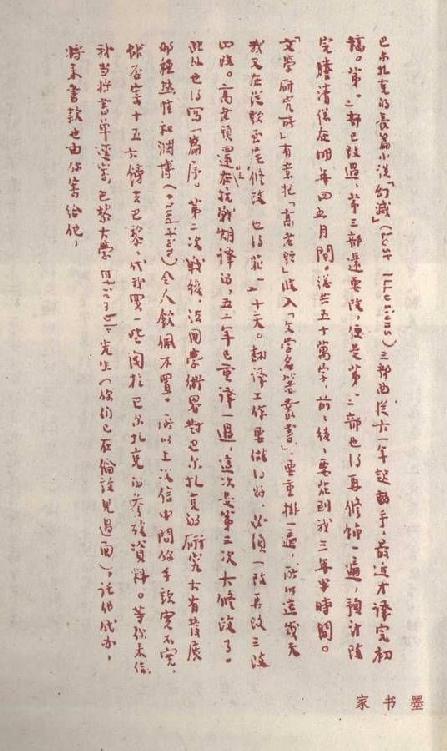 巴尔扎克的长篇小说「幻灭」(Les Illusions)三部曲，从六一年起动手，最近才译完初
稿。第一二部已改过，第三部还要改，便是第一二部也得再修饰一遍，预计改
完誊清总在明年四五月间。总共五十万字，前前后后要花到我三年半时间。
「文学研究所」有意把「高老头」收入「文学名著丛书」，要重排一遍，所以这几天
我又在从头至尾修改，也得花一二十天。翻译工作要做得好，必须一改再改三改
四改。高老头还在抗战期译的，五二年已重译一遍，这次是第三次大修改了。
此外也得写一篇序。第二次战后，法国学术界对巴尔扎克的研究大有发展，
那种热情和渊博(erudition)令人钦佩不置。所以上次信中问你手头宽不宽，
能否寄十五六镑去巴黎，代我买一些关于巴尔扎克的参考资料。等你来信
我当将书单径寄巴黎大学先生(你们已在伦敦见过面)，托他代办，
将来书款也由你寄给他。
墨书家